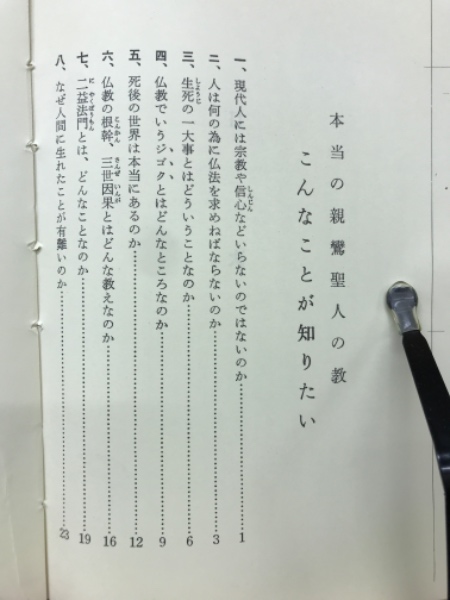 本当の親鸞聖人の教
こんなことが知りたい
一、現代人には宗教や信心などいらないのではないのか…………1
二、人は何の為に仏法を求めねばならないのか…………3
三、生死の一大事とはどういうことなのか…………6
四、仏教でいうジゴクとはどんなところなのか…………9
五、死後の世界は本当にあるのか…………12
六、仏教の根幹、三世因果とはどんな教えなのか…………16
七、二益法門とは、どんなことなのか…………19
八、なぜ人間に生れたことが有難いのか…………23